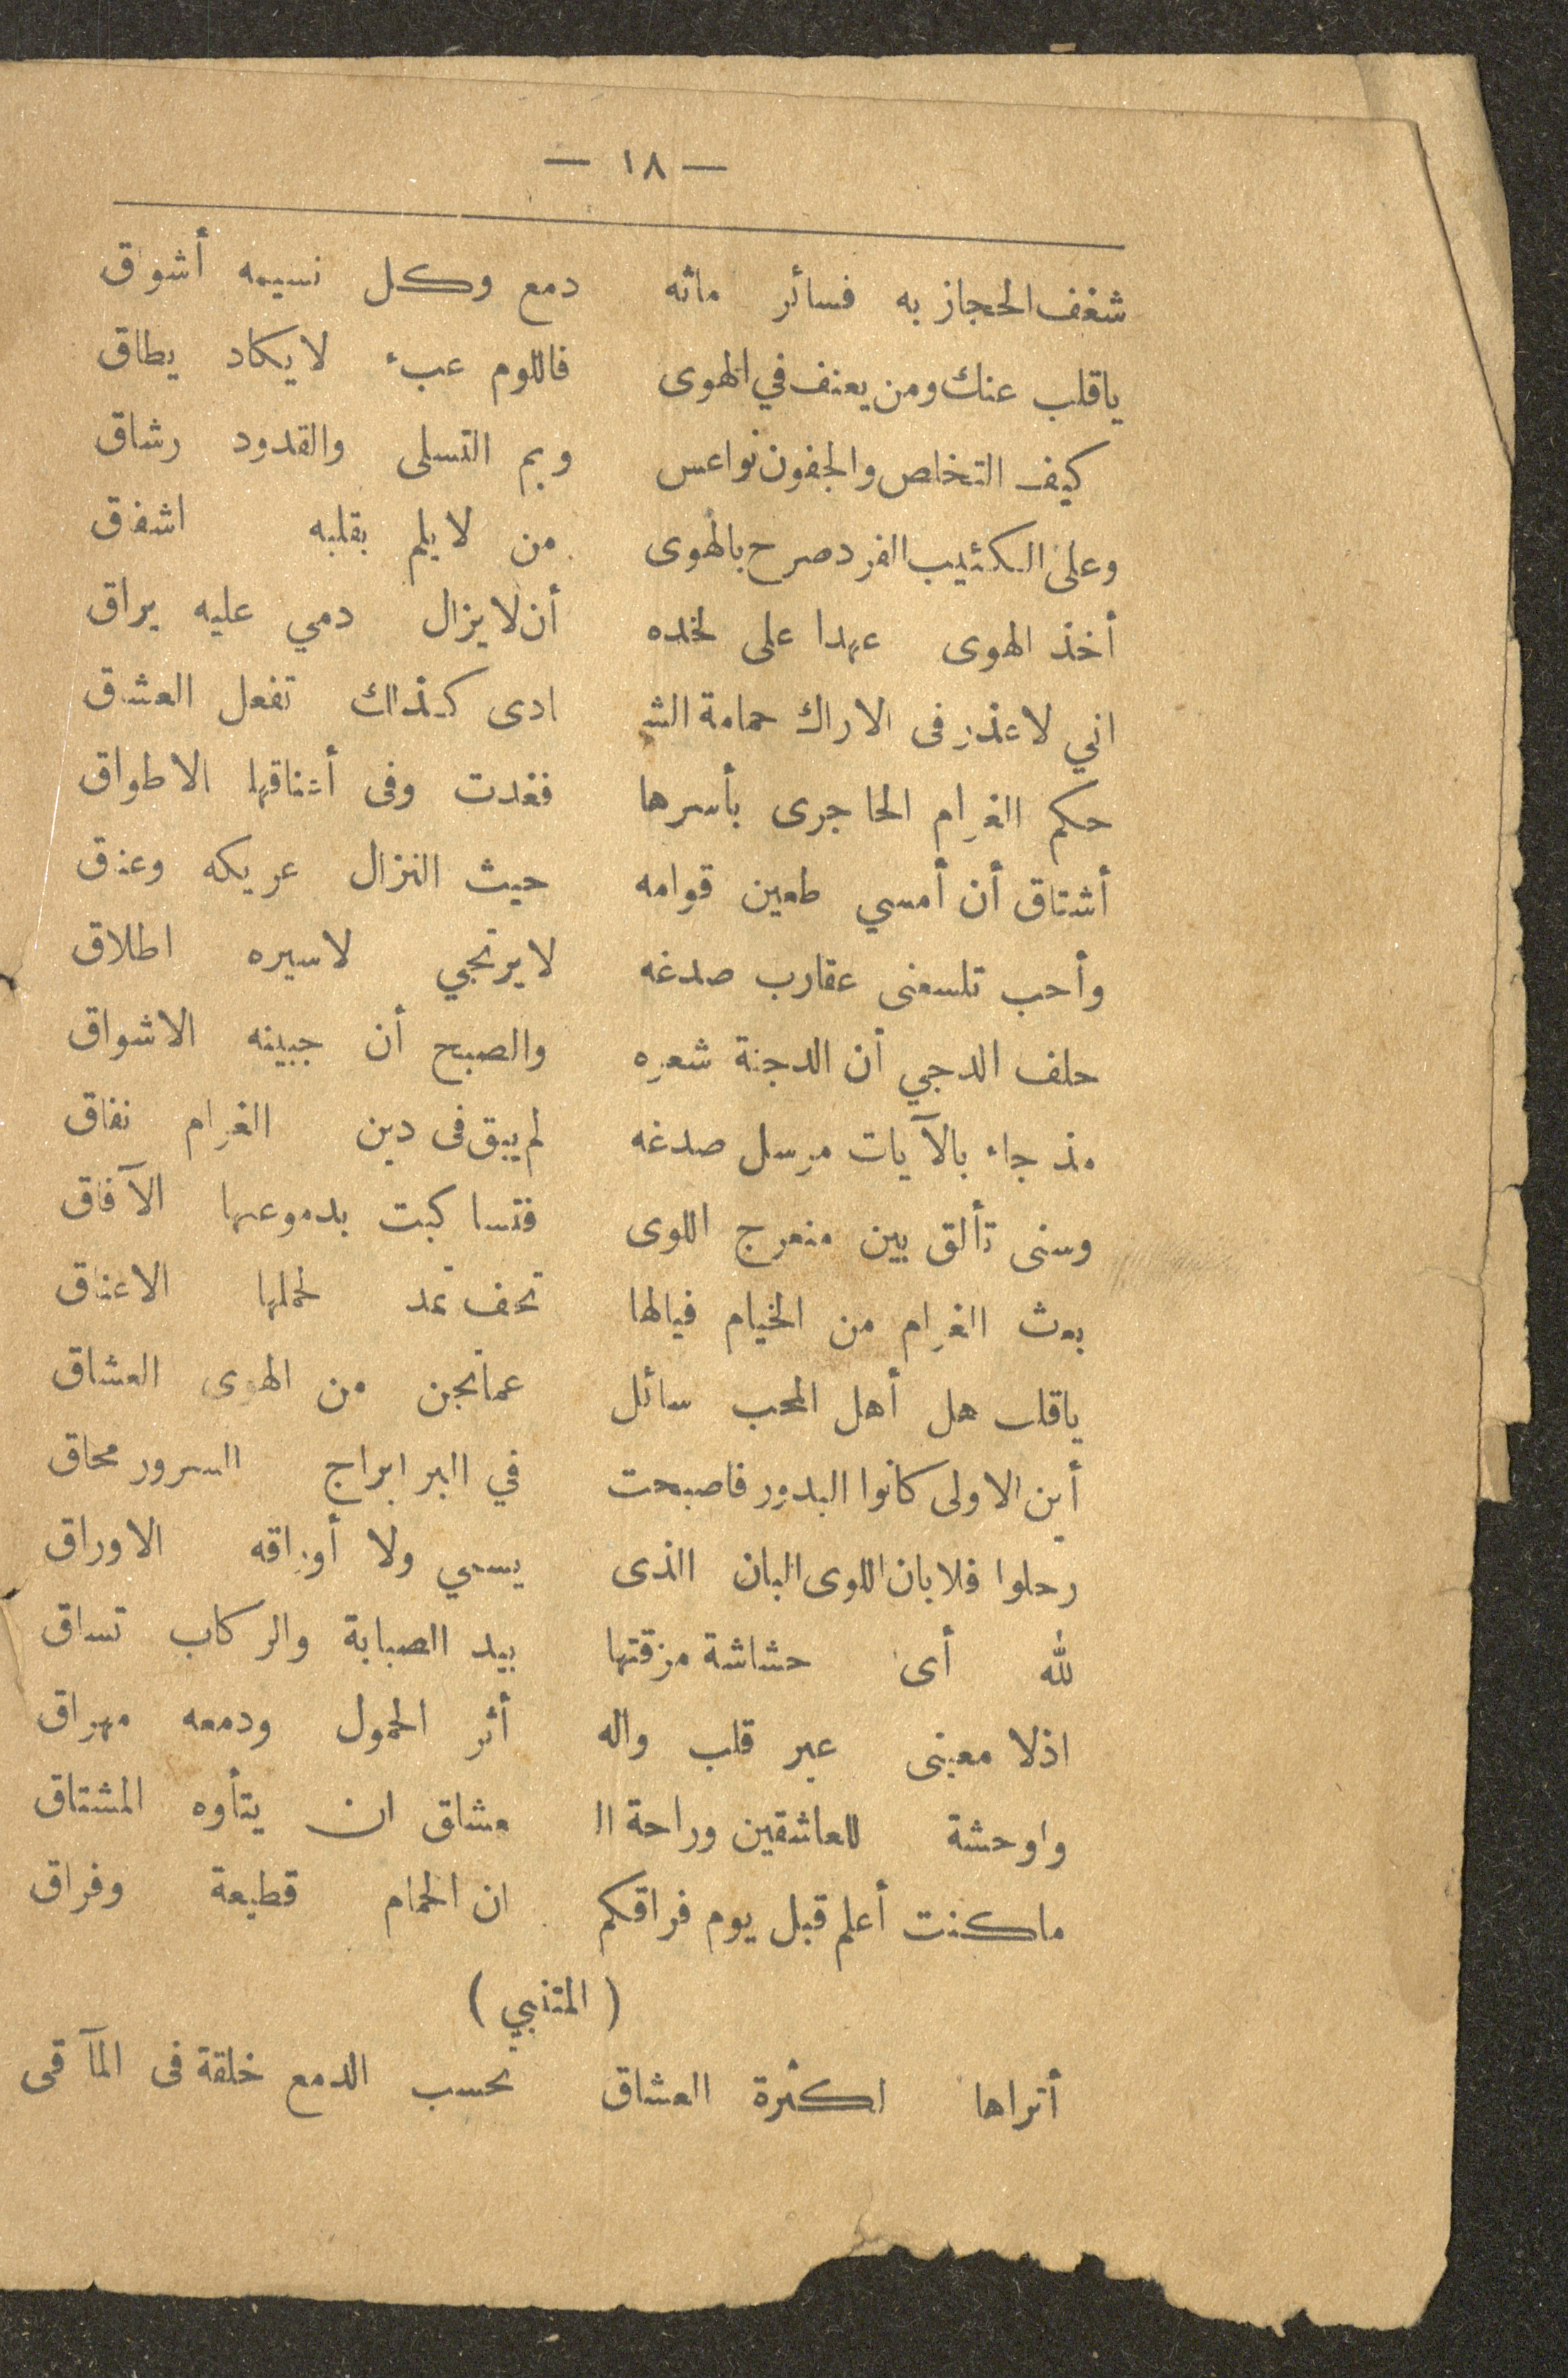 — ١٨ —
شغف الحجاز به فسائر مائه دمع وكل نسيمه أشواق
ياقلب عنك ومن يعنف في الهوى فاللوم عبء لايكاد يطاق
كيف التخلص والجفون نواعس وبم التسلى والقدود رشاق
وعلى الكثيب الفرد صرح بالهوى من لايلم بقلبه اشفاق
أخذ الهوى عهدا على لخده أن لايزال دمي عليه يراق
اني لاعذر فى الاراك حمامة الش ادى كذاك تفعل العشاق
حكم الغرام الحاجرى بأسرها فغدت وفى أعناقها الاطواق
أشتاق أن أمسي طعين قوامه حيث النزال عريكه وعناق
وأحب تلسعنى عقارب صدغه لايرتجي لاسيره اطلاق
حلف الدجي أن الدجنة شعره والصبح أن جبينه الاشواق
مذ جاء بالآيات مرسل صدغه لم يبق فى دين الغرام نفاق
وسنى تألق بين منعرج اللوى فتساكبت بدموعها الآفاق
بعث الغرام من الخيام فيالها تحف تمد لحملها الاعناق
ياقلب هل أهل المحب سائل عماتجن من الهوى العشاق
أين الاولى كانوا البدور فاصبحت في البر ابراج السرور محاق
رحلوا فلابان اللوى البان الذى يسمي ولا أوراقه الاوراق
لله أى حشاشة مزقتها بيد الصبابة والركاب تساق
اذلا معينى غير قلب واله أثر الحمول ودمعه مهراق
واوحشة للعاشقين وراحة ال عشاق ان يتأوه المشتاق
ماكنت أعلم قبل يوم فراقكم ان الحمام قطيعة وفراق
( المتنبي )
أتراها لكثرة العشاق تحسب الدمع خلقة فى المآقى